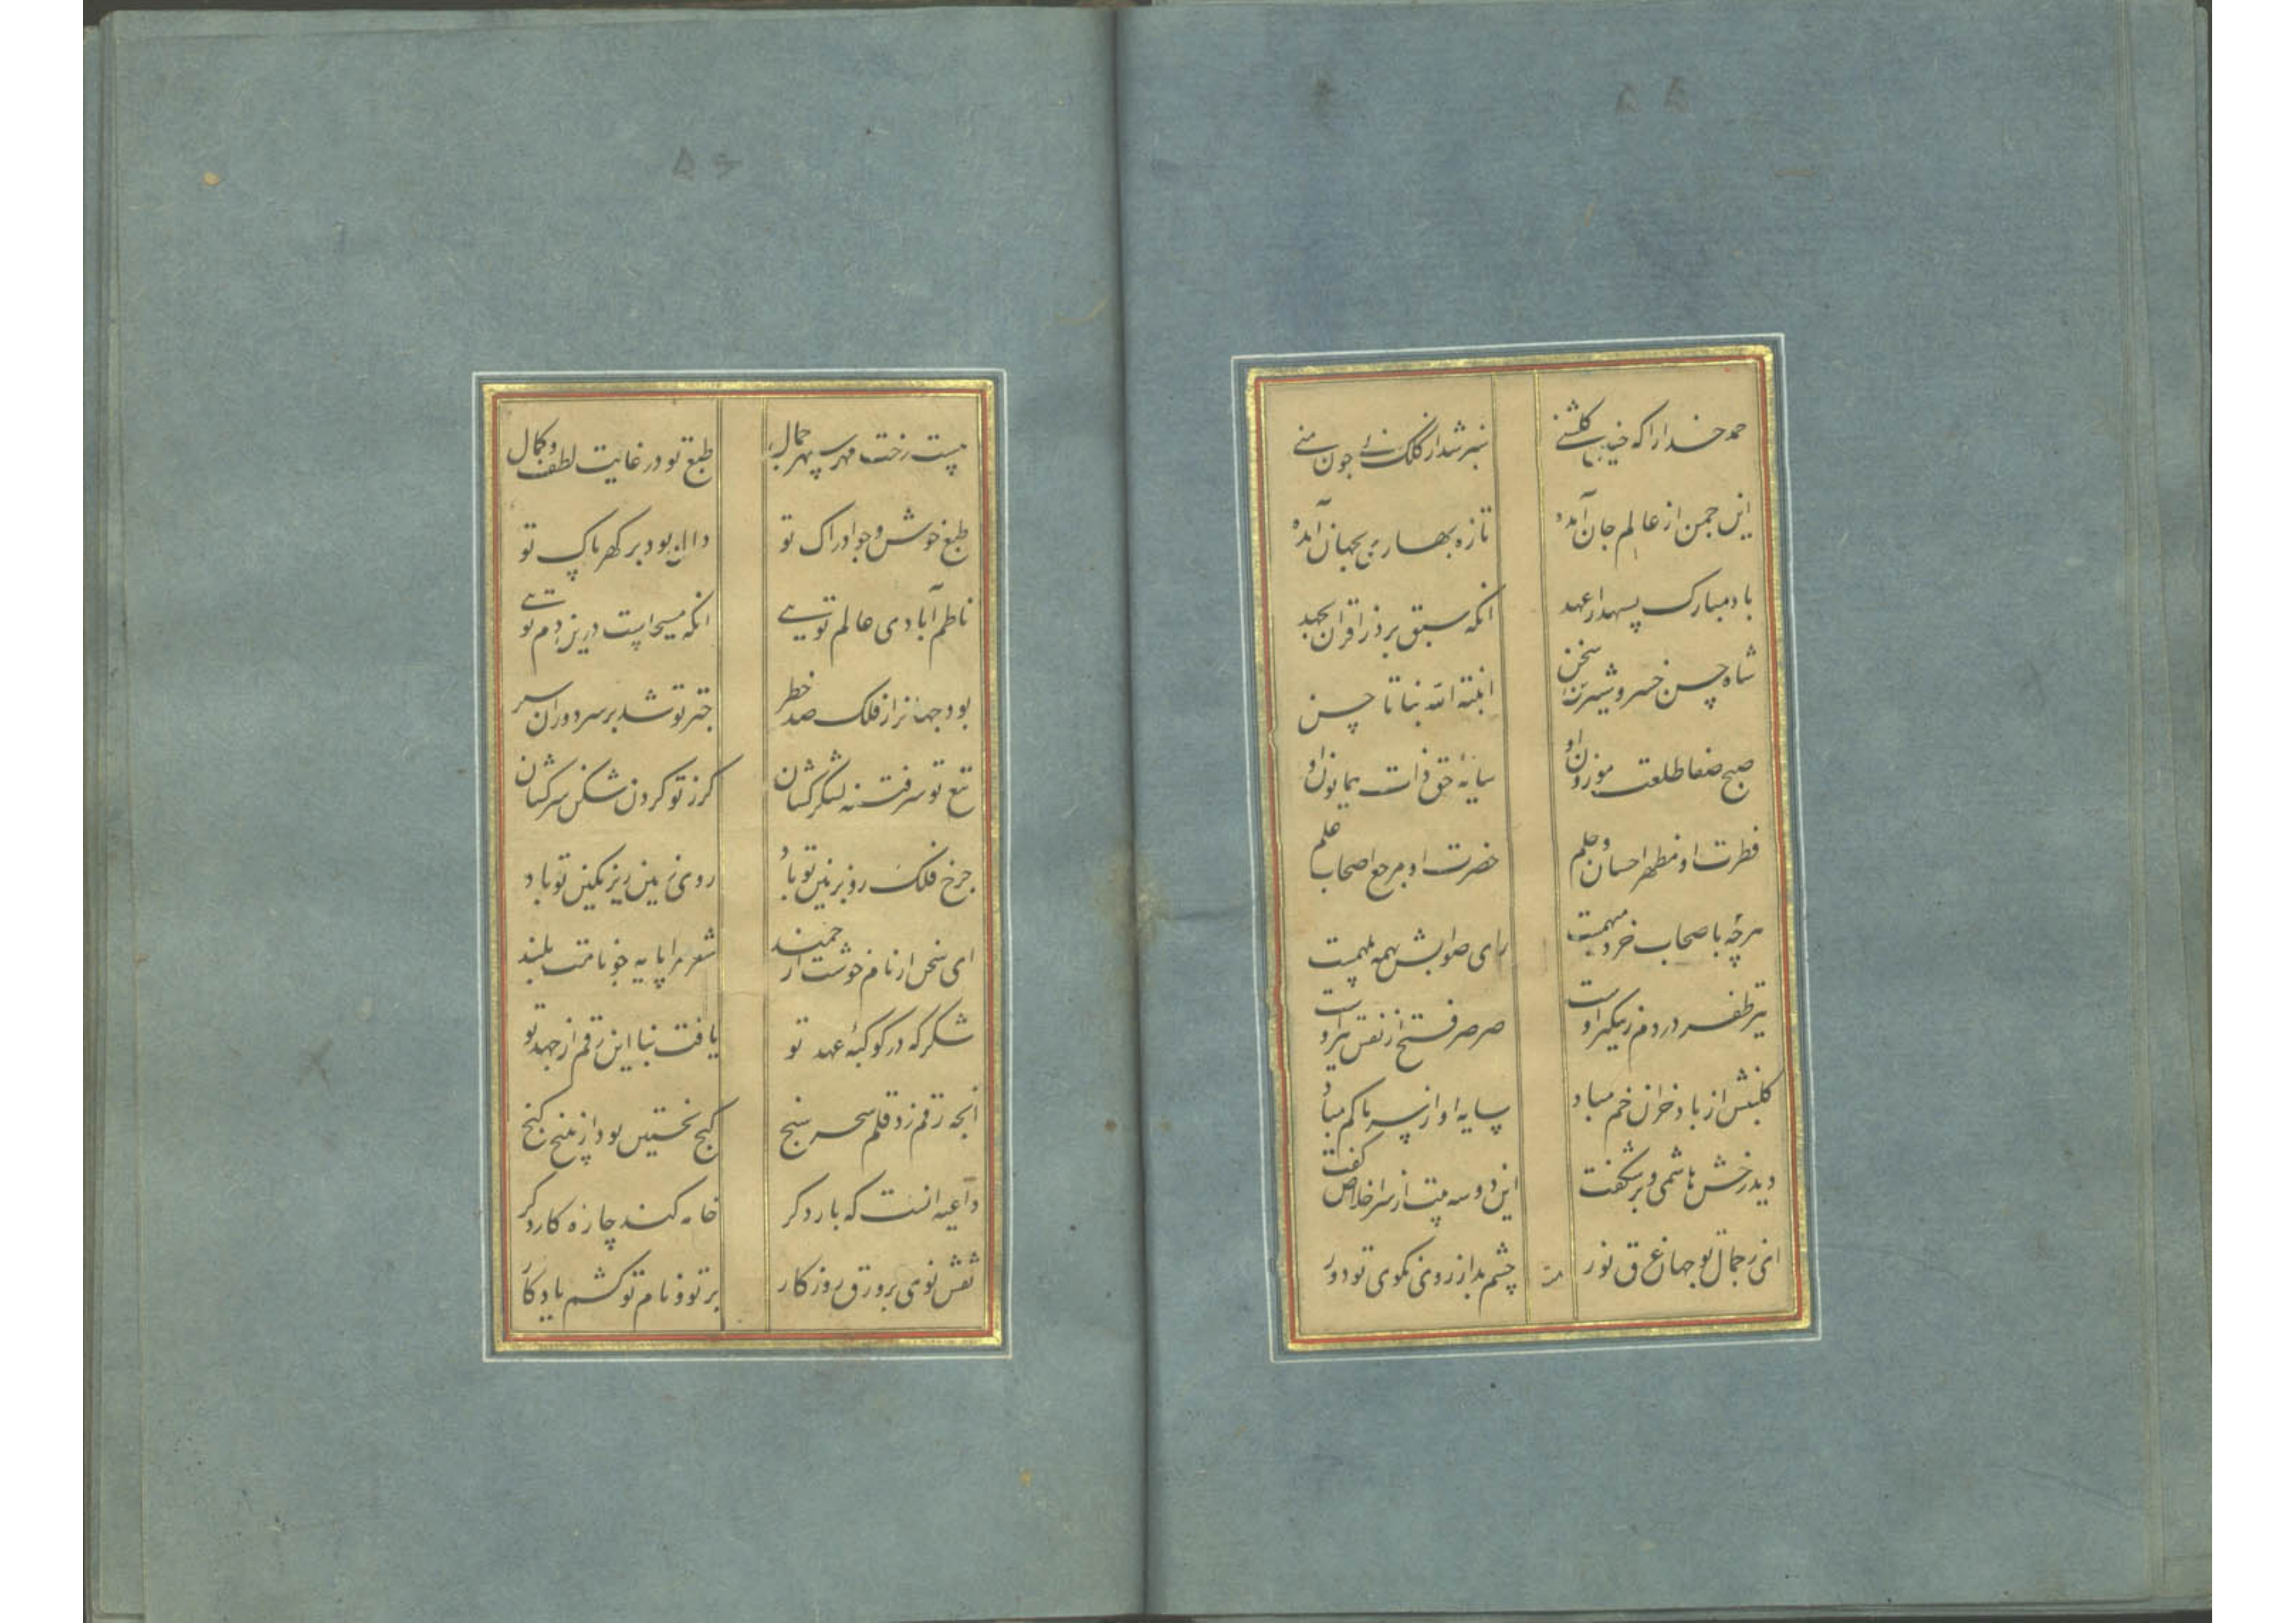 حمد خدا را که چنین گلشنی
سبز شد از کلک نی چون منی
این چمن از عالم جان آمده
تازه بهاری بجهان آمده
باد مبارک بسپهدار عهد
آنکه سبق برد ز اقران بجهد
شاه حسن خسرو شیرین سخن
انبته الله نباتا حسن
صبح صفا طلعت موزون او
سایهٔ حق ذات همایون او
فطرت او مظهر احسان و حلم
حضرت او مرجع اصحاب علم
هرچه باصحاب خرد مبهمست
رای صوابش بهمه ملهمست
تیر ظفر در دم زهگیر اوست
صرصر فتح از نفس تیر اوست
گلبنش از باد خزان خم مباد
سایه او از سر ما کم مباد
دید رخش هاشمی و برشکفت
این دو سه بیت از سر اخلاص گفت
ای ز جمال تو جهان غرق نور
چشم بد از روی نکوی تو دور
هست رخت مهر سپهر جمال
طبع تو در غایت لطف و کمال
طبع خوش و جود ادراک تو
دال بود بر گهر پاک تو
ناظم آبادی عالم تویی
آنکه مسیحاست درین دم تویی
بود جهانرا ز فلک صد خطر
چتر تو شد بر سر دوران سپر
تیغ تو سر فتنه لشکرکشان
گرز تو گردن شکن سرکشان
چرخ فلک رو بزمین تو باد
روی زمین زیر نگین تو باد
ای سخن از نام خوشت ارجمند
شعر مرا پایه چو نامت بلند
شکر که در کوکبهٔ عهد تو
یافت بنا این رقم از جهد تو
آنچه رقم زد قلم سحر سنج
گنج نخستین بود از پنج گنج
داعیه آنست که بار دگر
خامه کند چاره کار دگر
نقش نوی بر ورق روزگار
پرتو و نام تو کشم یادگار